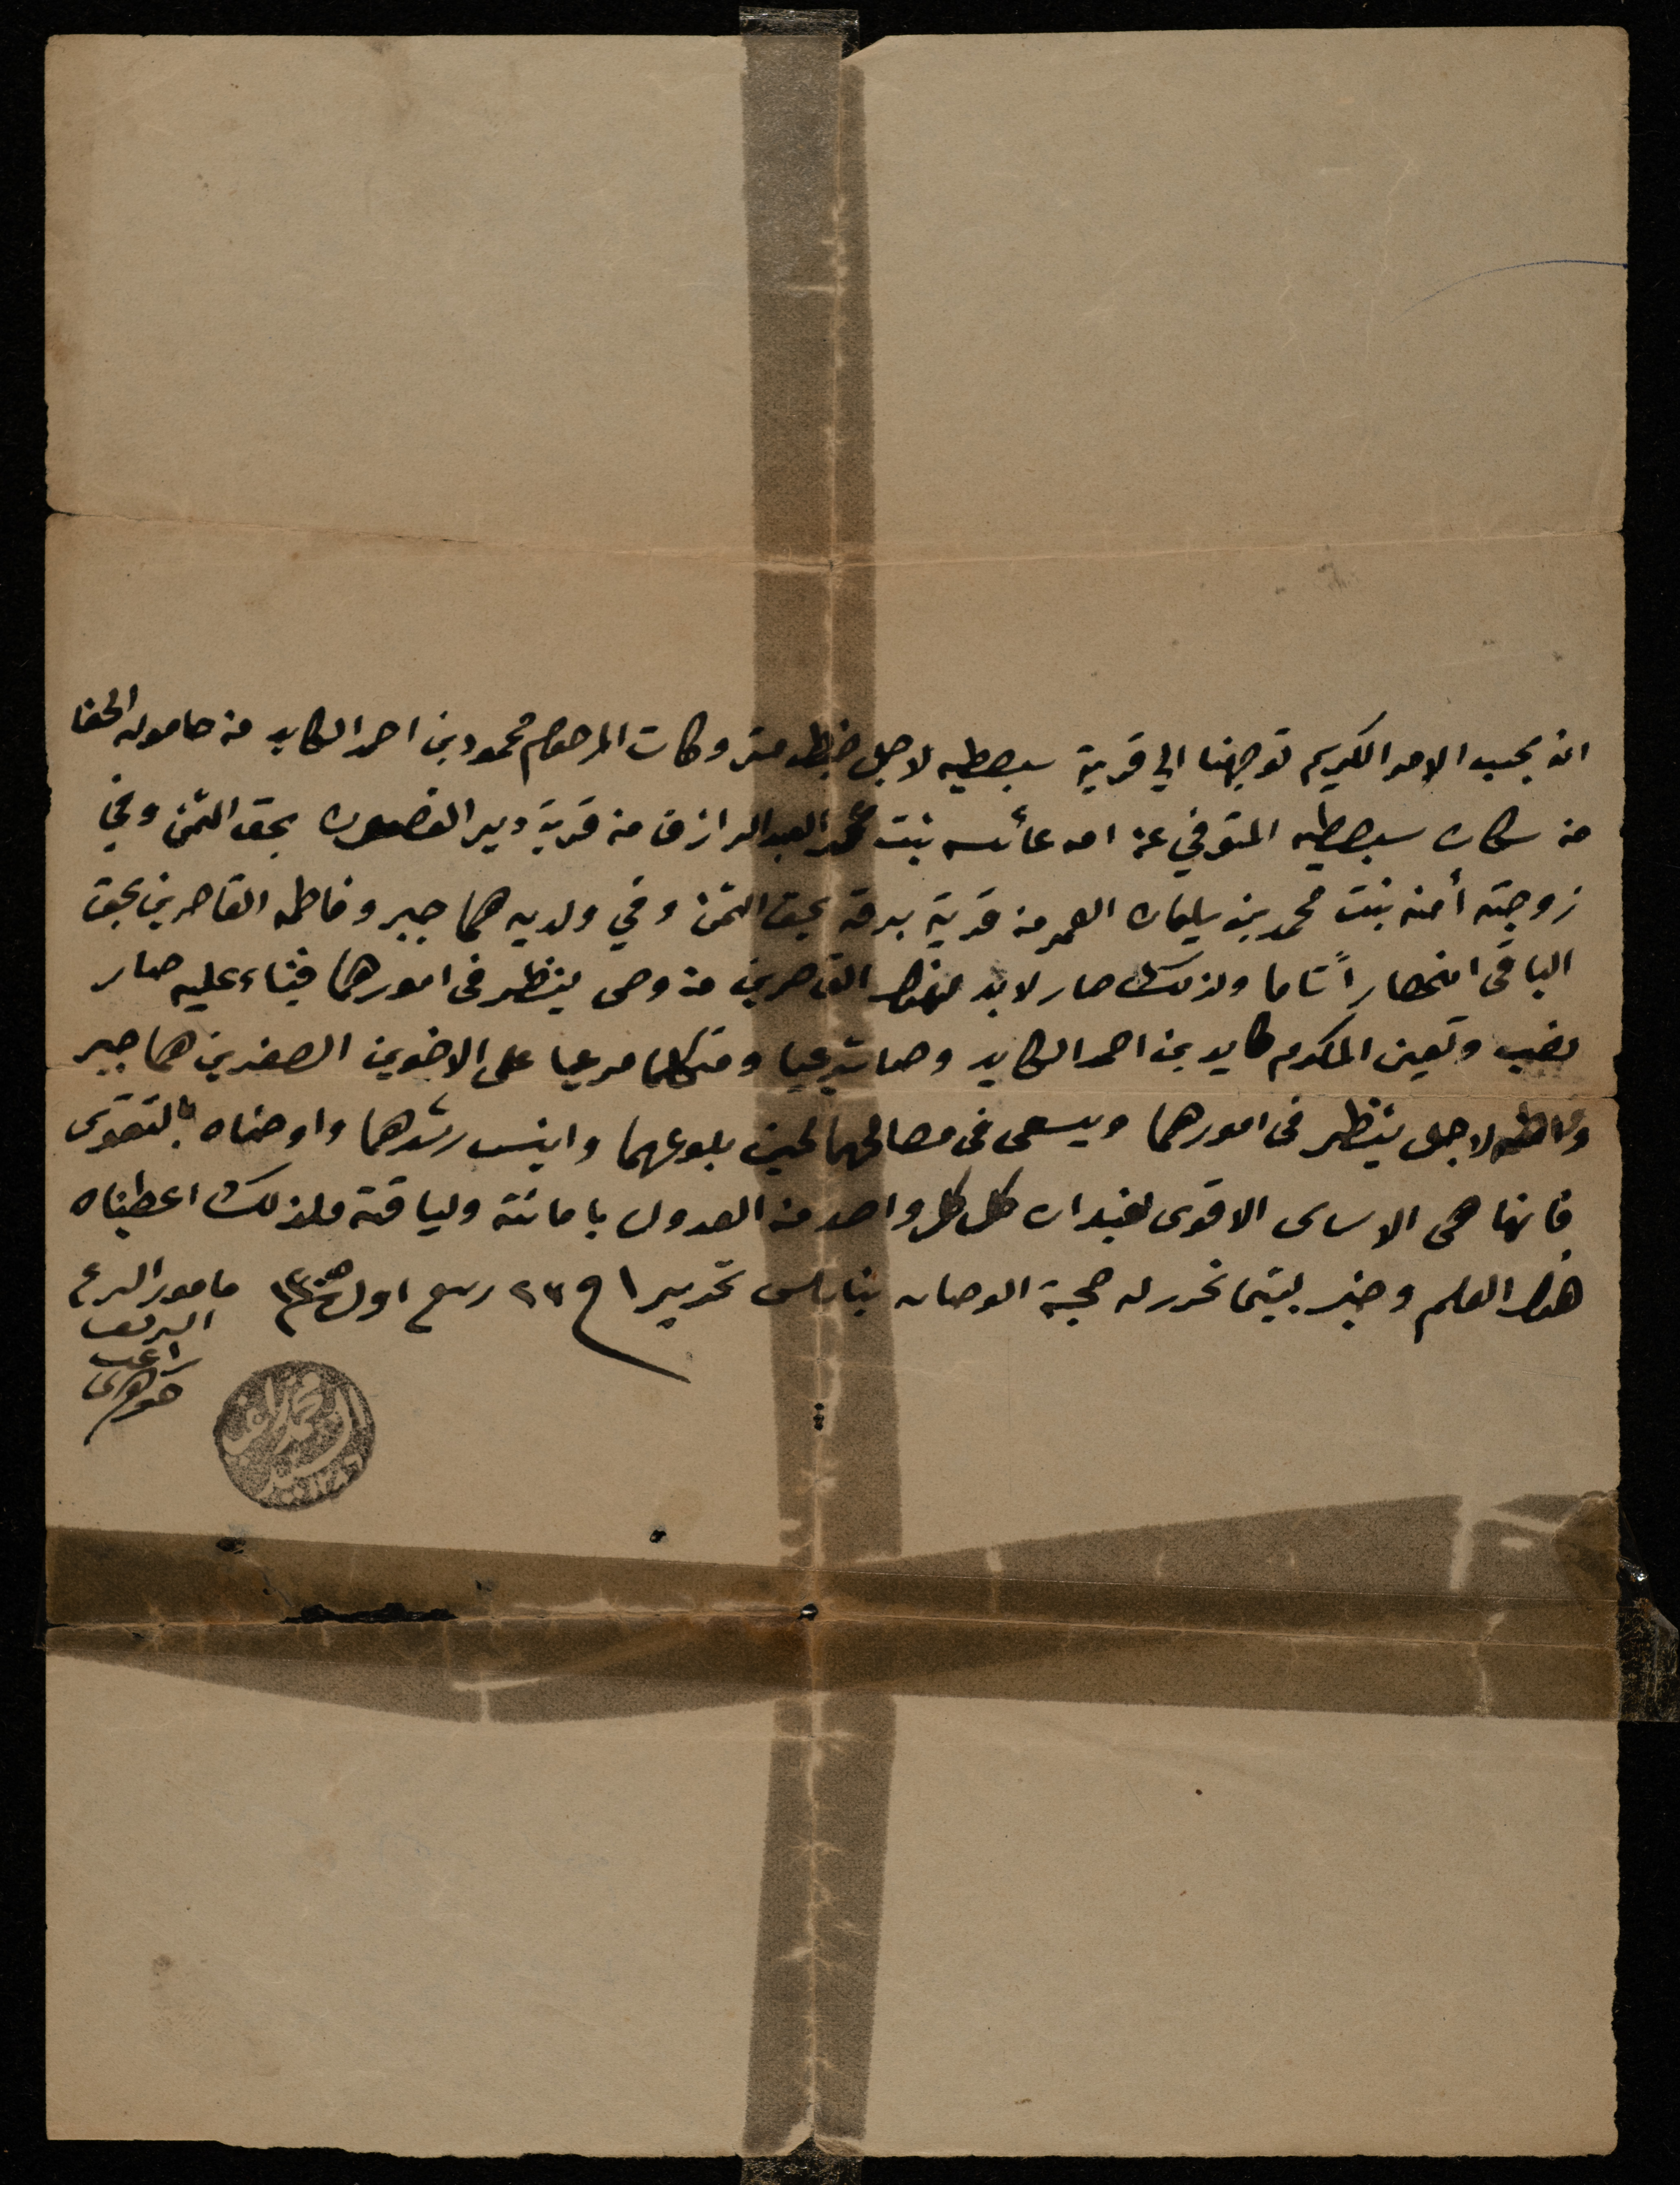 انه بحسب الامر الكريم توجهنا الي قرية سبصطيه لاجل ضبط متروكات المرحوم محمود بن احمد الكايد من حاموله الحفا
من سكان سبصطيه المتوفي عن امه عائشه بنت محمد العبد الرازق من قرية دير الغصون بحق الثمن وفي
زوجته أمنه بنت محمد بن سليمان العمر من قرية برقه بحق الثمن وفي ولديه هما جبر وفاطمه القاصرين بحق
الباقى انحصاراً تاما ولذلك صار لابد لهذا القاصرين من وصى ينظر فى امورهما فبناء عليه صار
نصب وتعين المكرم كايد بن احمد الكايد وصيا شرعيا ومتكلما مرعيا على الاخوين الصغرين هما جبر
وفاطمه لاجل ينظر فى امورهما ويسعى فى مصالحهما لحين بلوغهما واينس رشدهما واوصناه بالتقوى
فانها هى الاساس الاقوى لغبدان كل كل واحد من العدول بامانته ولياقته فلذلك اعطيناه
هذا العلم وخبر ليتما نحرر له حجة الوصايه بنابلس تحريرا في ٢٧ ربيع اول سنه
مامور الشرعي
الشريف
راغب